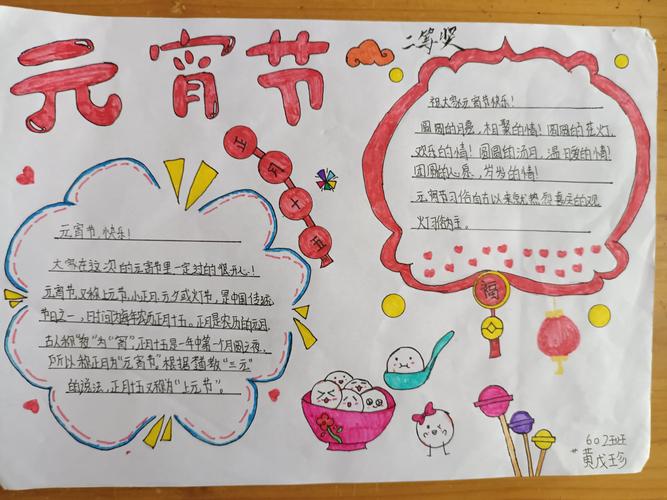 元宵节
二等奖
正月十五
祝大家元宵节快乐!
圆圆的月亮,相聚的情!圆圆的花灯,
欢乐的情!圆圆的汤月,温暖的情!
团圆的心意,岁岁的情!
元宵节习俗自古以来就热烈喜庆的观
灯习俗为主。
福
元宵节,快乐!
大家在这次的元宵节里一定过的很开心!
元宵节,又称上元节,小正月,元夕或灯节,是中国传统
节日之一,时间为每年农历正月十五。正月是农历的元月
古人称"夜"为"宵",正月十五是一年中第一个月圆之夜,
所以称正月为"元宵节"根据道教"三元"
的说法,正月十五又称为"上元节"。
602班
黄戊珍